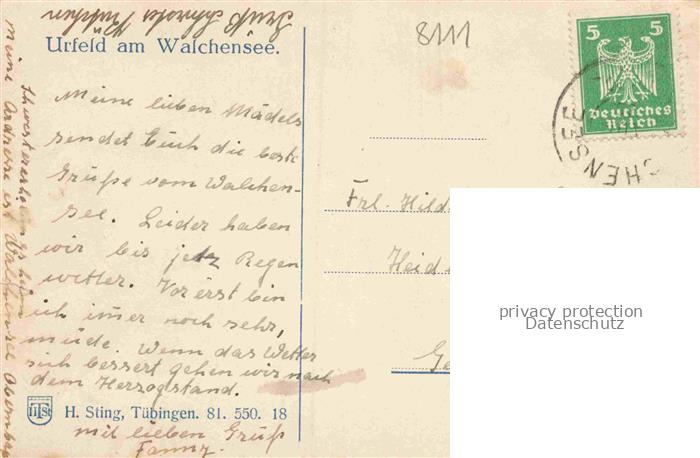 Gruß
8111
Urfeld am Walchensee.
5 5
Deutsches
Reich
CHENSEE
Meine lieben Mädels
sendet Euch die beste
Grüße vom Walchen-
see. Leider haben
wir bis jetz Regen
wetter. Vorerst bin
ich imer noch sehr,
müde. Wenn das Wetter
sich bessert gehen wir nach
dem Herzogstand.
Frl. Hild
Heid
Ge
privacy protection
Datenschutz
HStT
H. Sting, Tübingen. 81. 550. 18
mit lieben Gruß
Fanny.
Meine Adresse ist Walchensee Obernbay
Schwestererholungsheim